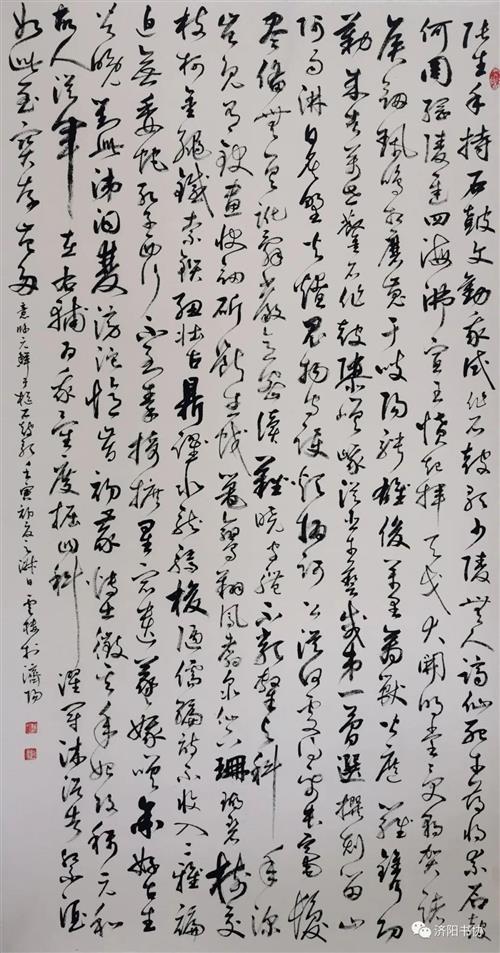 張生手持石鼓文勸我試作石鼓歌少陵無人謫仙死才薄將奈石鼓
何周綱陵遲四海沸宣王憤起揮天戈大開明堂受朝賀諸
侯劍珮鳴相磨蒐于岐陽騁雄俊萬里禽獸皆遮羅鐫功
勒成告萬世鑿石作鼓隳嵯峨從臣才藝咸第一揀選撰刻留山
阿雨淋日炙野火燎鬼物守護煩撝訶公從何處得紙本毫髮
盡備無差訛辭嚴義密讀難曉字體不類隸與科年深
豈免有缺畫快劍斫斷生蛟鼉鸞翔鳳翥眾仙下珊瑚碧樹交
枝柯金繩鐵索鎖鈕壯古鼎躍水龍騰梭陋儒編詩不收入二雅褊
迫無委蛇孔子西行不到秦掎摭星宿遺羲娥嗟余好古生
苦晚對此涕淚雙滂沱憶昔初蒙博士徵其年始改稱元和
故人從軍在右輔為我量度掘臼科濯冠沐浴告祭酒
如此至寶存豈多
意臨元鮮于樞石鼓歌壬寅初夏之日於濟陽
济阳书协